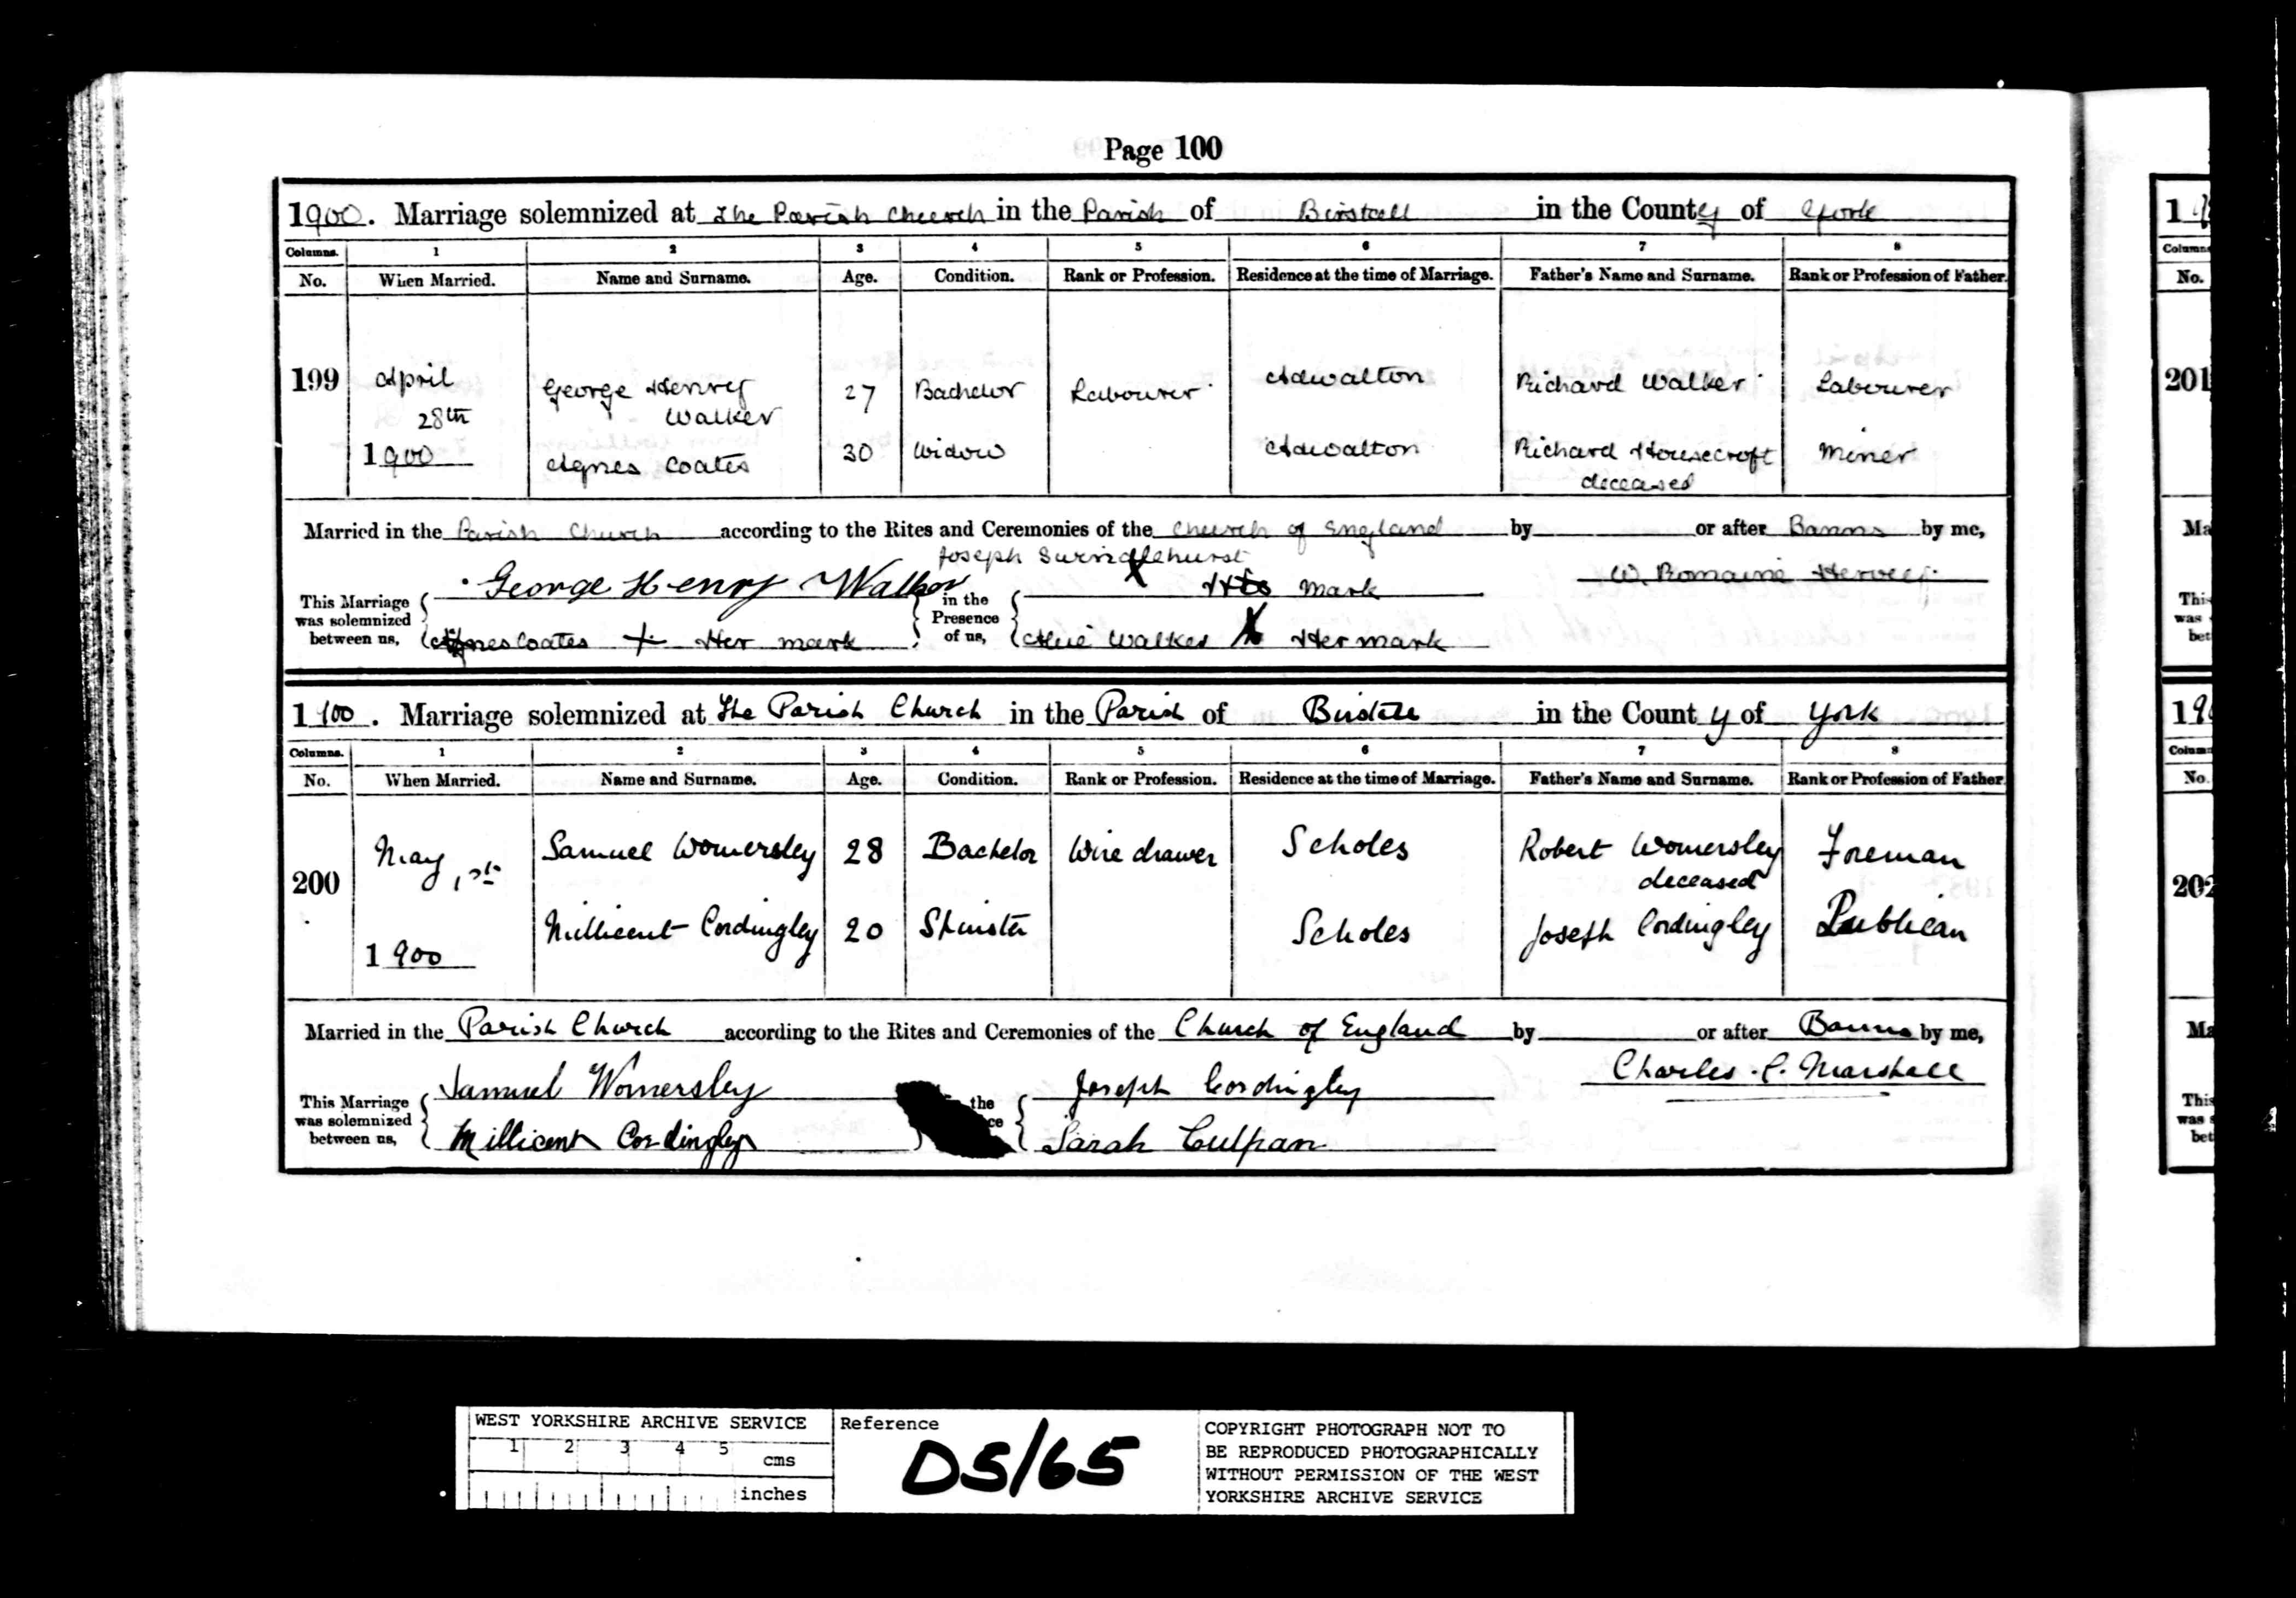 Page 100
1900. Marriage solemnized at The Parish Church in the Parish of Birstall in the County of York
Columns. 1 2 3 4 5 6 7 8
No. When Married. Name and Surname. Age. Condition. Rank or Profession. Residence at the time of Marriage. Father's Name and Surname. Rank or Profession of Father.
199 April 28th 1900 George Henry Walker 27 Bachelor Labourer Adwalton Richard Walker Labourer
Agnes Coates 30 Widow Adwalton Richard Housecroft deceased Miner
Married in the Parish Church according to the Rites and Ceremonies of the Church of England by or after Banns by me,
George Henry Walker Joseph X His mark W. Romaine Hervey.
This Marriage was solemnized between us, in the Presence of us,
Agnes Coates + Her mark Walker X Her mark
1900. Marriage solemnized at The Parish Church in the Parish of Birstall in the County of York
Columns. 1 2 3 4 5 6 7 8
No. When Married. Name and Surname. Age. Condition. Rank or Profession. Residence at the time of Marriage. Father's Name and Surname. Rank or Profession of Father.
200 May 1st 1900 Samuel Womersley 28 Bachelor Wire drawer Scholes Robert Womersley deceased Foreman
Millicent Cordingley 20 Spinster Scholes Joseph Cordingley Publican
Married in the Parish Church according to the Rites and Ceremonies of the Church of England by or after Banns by me,
Samuel Womersley Joseph Cordingley Charles. C. Marshall
This Marriage was solemnized between us, the
Millicent Cordingley Sarah Culpan
201
202
WEST YORKSHIRE ARCHIVE SERVICE
1 2 3 4 5 cms
inches
Reference
D5/65
COPYRIGHT PHOTOGRAPH NOT TO
BE REPRODUCED PHOTOGRAPHICALLY
WITHOUT PERMISSION OF THE WEST
YORKSHIRE ARCHIVE SERVICE